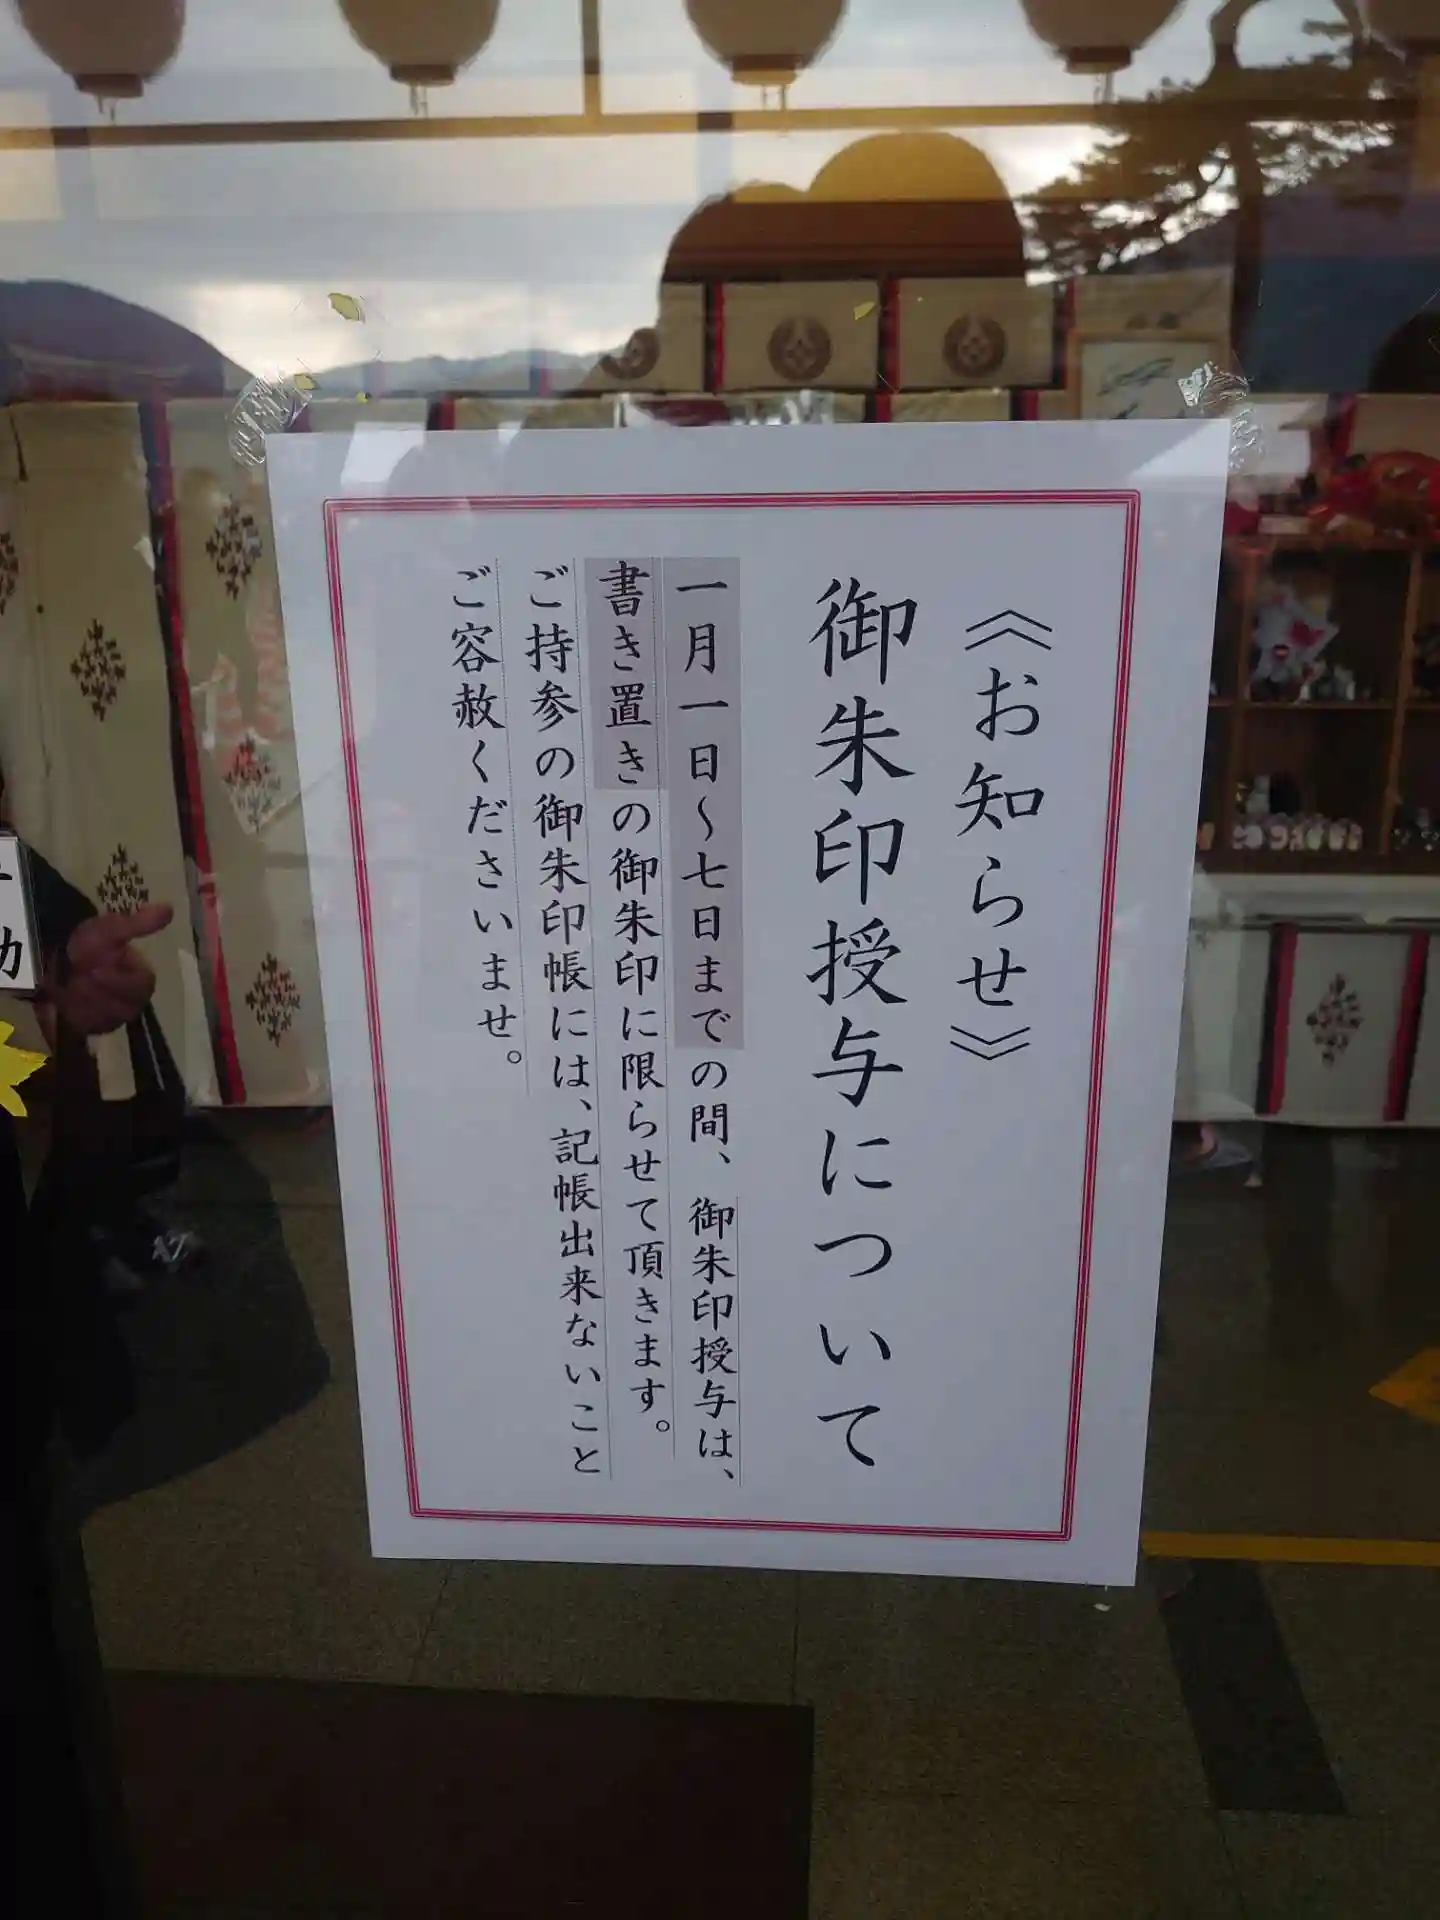 《お知らせ》
御朱印授与について
一月一日～七日までの間、御朱印授与は、
書き置きの御朱印に限らせて頂きます。
ご持参の御朱印帳には、記帳出来ないこと
ご容赦くださいませ。